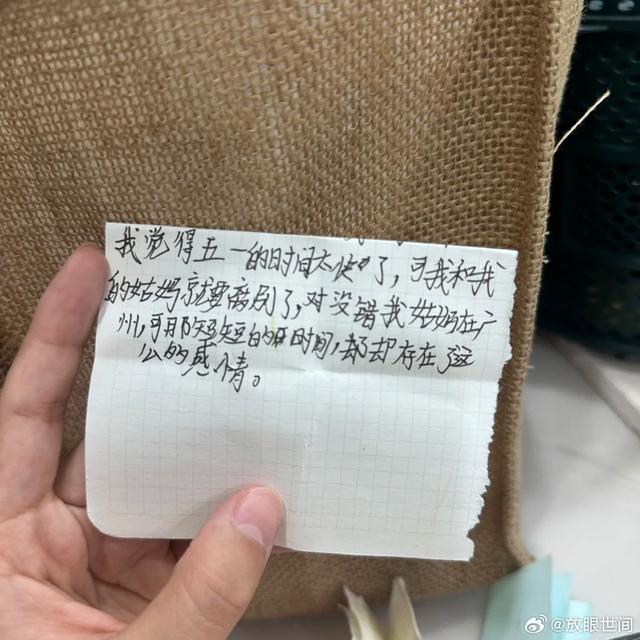 我觉得五一的时间太快了，可我和我
的姑妈就要离别了，对没错我姑妈在广
州，可那短短的时间，却却存在了这
么的感情。
@放眼世间